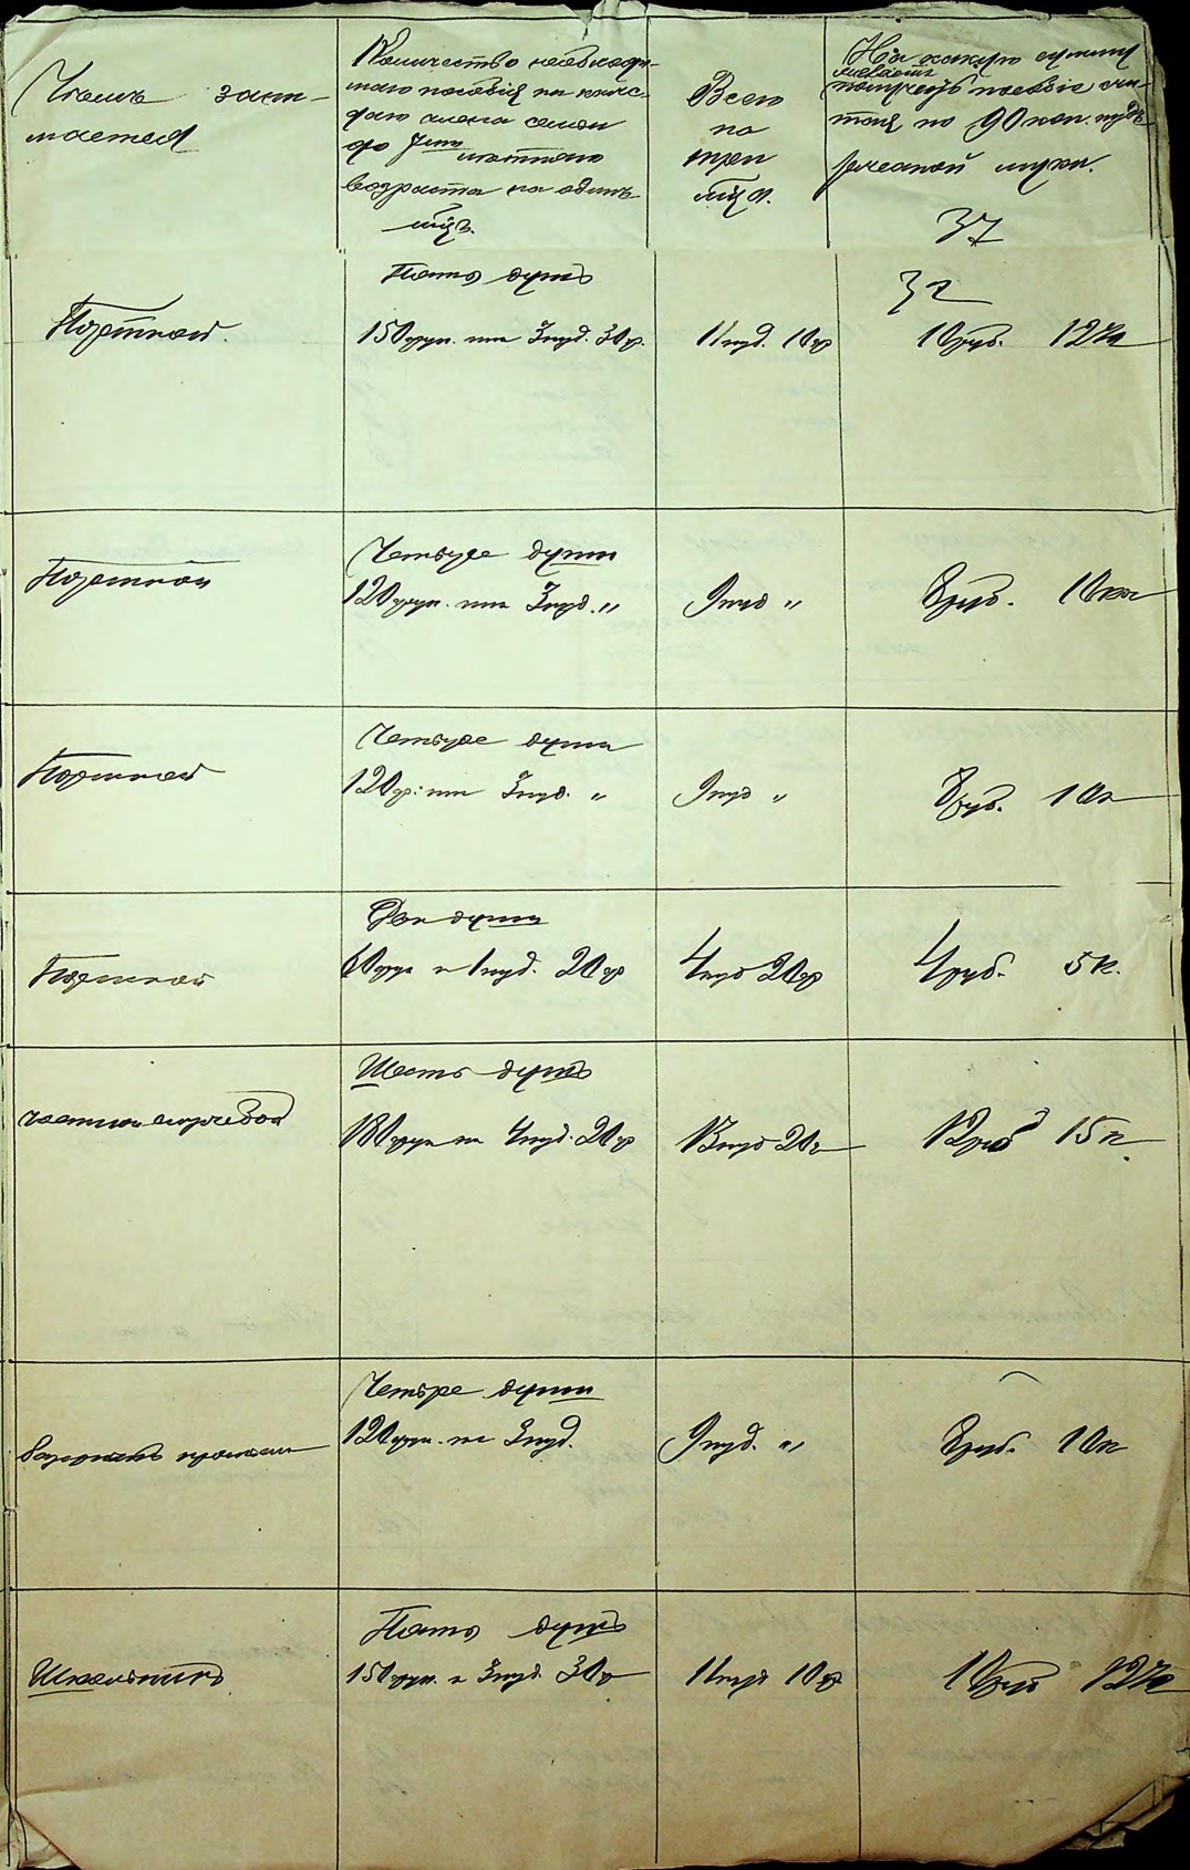 Чемъ зани-
мается
Количество необходи-
маго пособія на каж-
даго члена семьи
до лѣтняго
возраста на одинъ
мѣц.
Всего
на
три
мѣц.
На какую сумму
пособіе счи-
тая по 90 коп. пудъ
ржаной муки.
37
32
Портной.
Пять душъ
150 фун. или 3 пуд. 30 ф.
11 пуд. 10 ф
10 руб. 12 ½ к
Портной
Четыре души
120 фун. или 3 пуд. „
9 пуд „
8 руб. 10 коп
Портной
Четыре души
120 ф. или 3 пуд. „
9 пуд „
8 руб. 10 к
Портной
Двѣ души
60 фун и 1 пуд. 20 ф
4 пуд 20 ф
4 руб. 5 к.
Шесть душъ
180 фун и 4 пуд. 20 ф
13 пуд 20 ф
12 руб 15 к.
Четыре души
120 фун. и 3 пуд.
9 пуд. „
8 руб. 10 к
Школьникъ
Пять душъ
150 фун. и 3 пуд 30 ф
11 пуд 10 ф
10 руб 12 ½ к